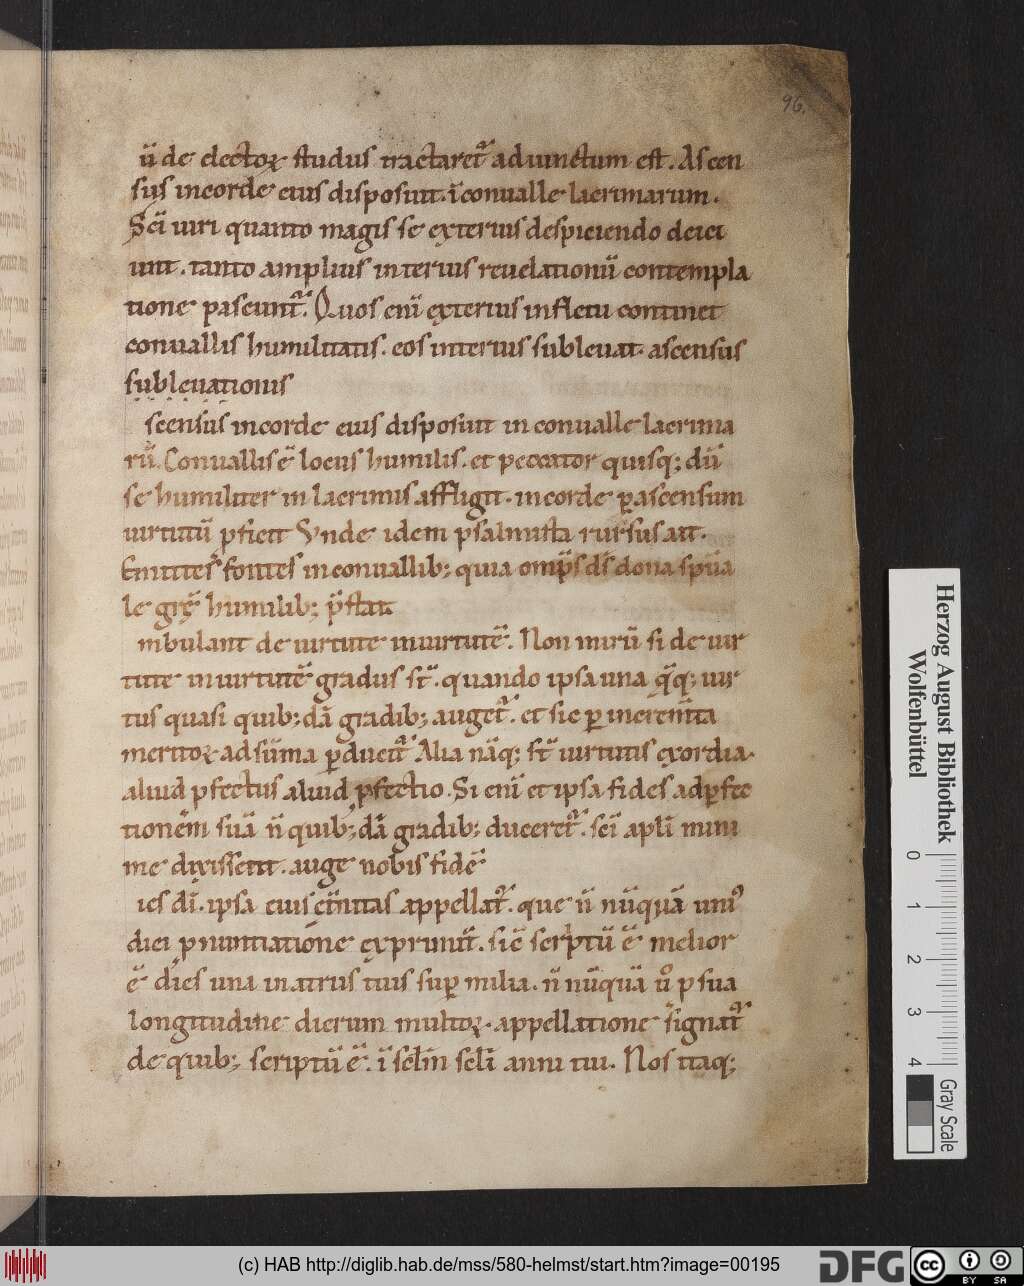 96.
ū de electoꝝ studiis tractaret᷑ adiunctum est. Ascen
sus in corde eius disposuit. ī conualle lacrimarum.
Sc̄i uiri quanto magis se exterius despiciendo deici
unt. tanto amplius interius reuelationū contempla
tione pascunt᷑. Quos enī exterius in fletu continet
conuallis humilitatis. eos interius subleuat ascensus
subleuationis
scensus in corde eius disposuit in conualle lacrima
rū. Conuallis ē locus humilis. et peccator quisq; dū
se humiliter in lacrimis affligit. in corde ꝑ ascensum
uirtutū ꝓficit Vnde idem psalmista rursus ait.
Emittes fontes in conuallib; quia omp̄s ds̄ dona sp̄ua
le grę̄ humilib; p̄stat
mbulant de uirtute in uirtutē. Non mirū si de uir
tute in uirtutē gradus st̄. quando ipsa una q̄q; uir
tus quasi quib;dā gradib; auget᷑. et sic ꝑ increm̄ta
meritoꝝ ad sūma ꝑducit᷑ Alia nāq; st̄ uirtutis exordia.
aliud ꝓfectus aliud ꝑfectio. Si enī et ipsa fides ad ꝑfec
tionem suā n̄ quib;dā gradib; duceret᷑. sc̄i apl̄i mini
me dixissent. auge nobis fidē
ies dī. ipsa eius et̄nitas appellat᷑. que n̄ nūquā uni᷒
diei ꝓnuntiatione exprimit᷑. sic̄ scriptū ē melior
ē dies una in atriis tuis suꝑ milia. n̄ nūquā uͦ ꝓ sua
longitudine dierum multoꝝ. appellatione signat᷑
de quib; scriptū ē. ī sc̄lm sc̄li anni tui. Nos itaq;
Herzog August Bibliothek
Wolfenbüttel
0 1 2 3 4
Gray Scale
(c) HAB http://diglib.hab.de/mss/580-helmst/start.htm?image=00195
DFG
cc
BY SA